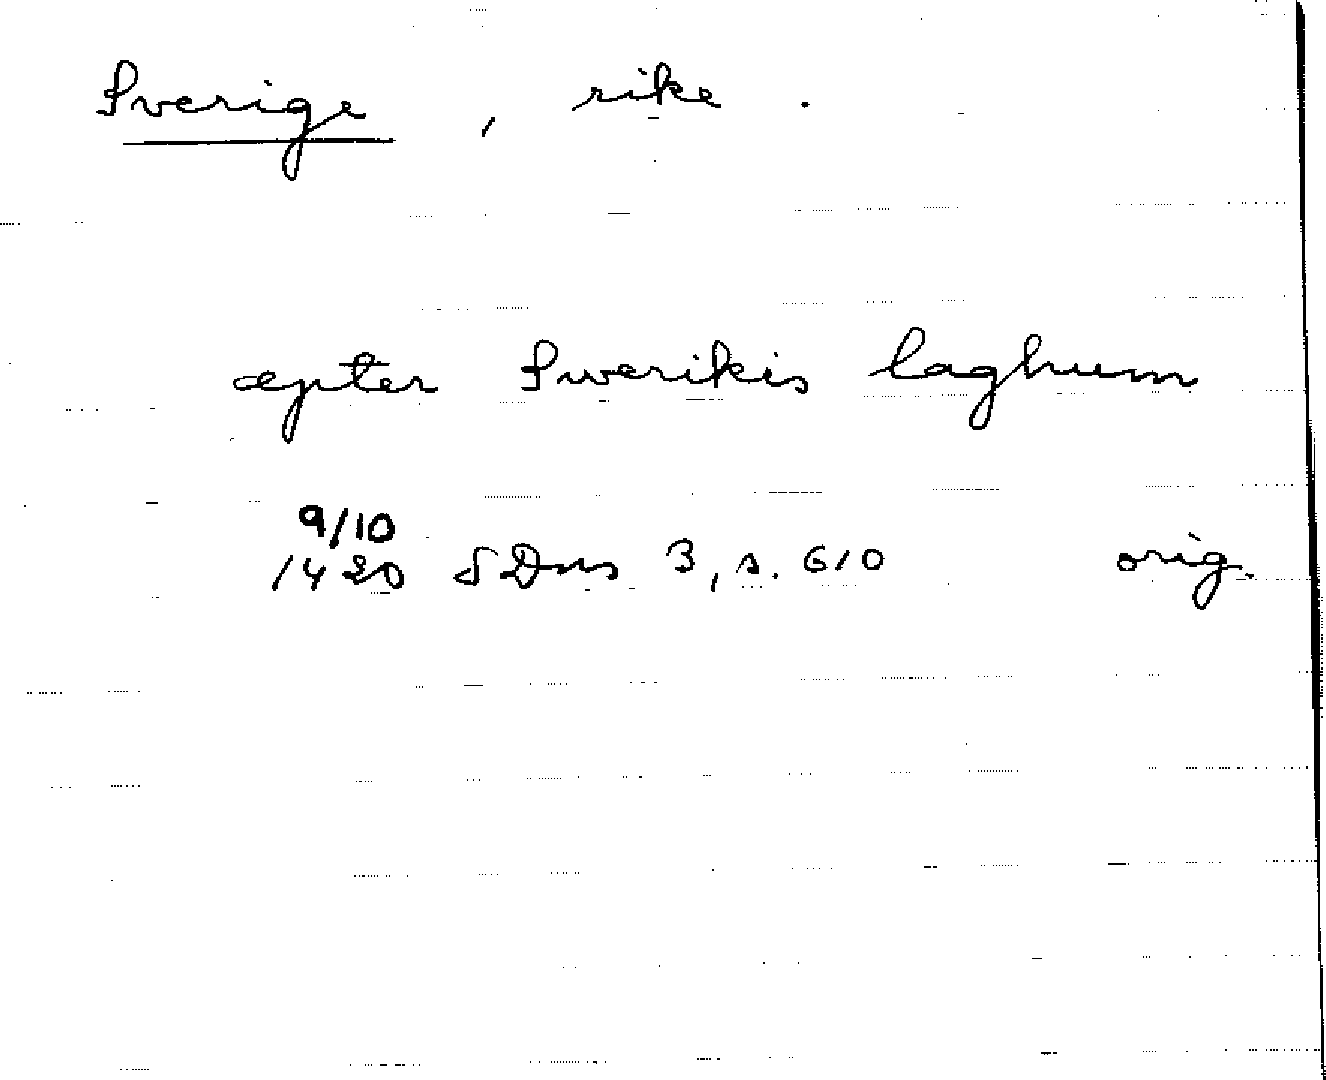 Sverige, rike.
æpter Swerikis laghum
9/10
1420 SDns 3, s. 610 orig.